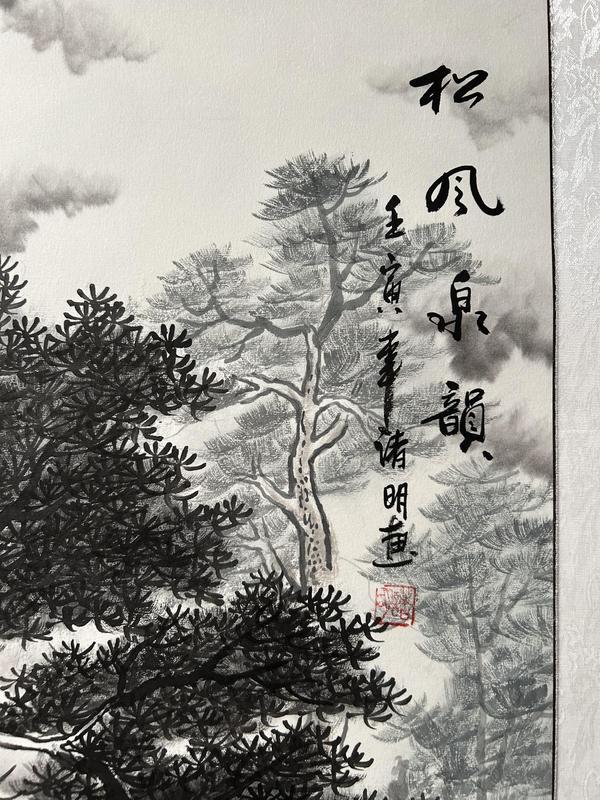 松风泉韻
壬寅年清明畫